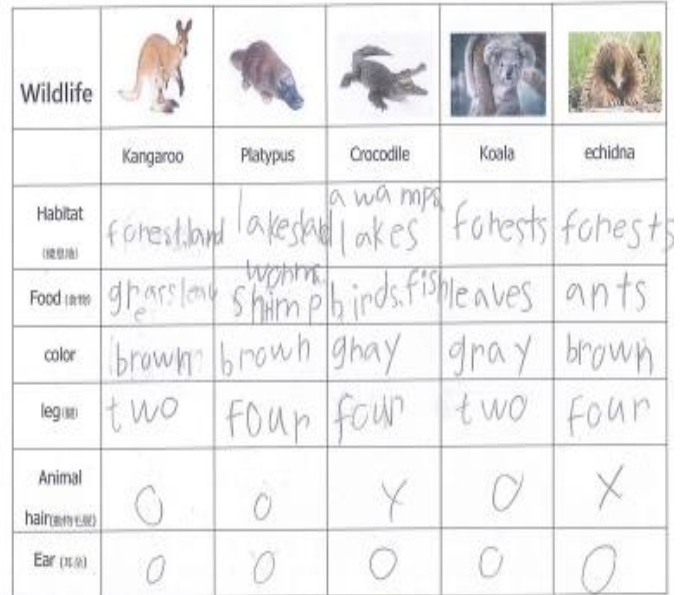 Wildlife
Kangaroo Platypus Crocodile Koala echidna
Habitat
(棲息地)
forest.land
lakes
awamps
lakes
forests
forests
Food (食物)
worms
shimp
birds.fish
leaves
ants
color
brown
brown
gray
gray
brown
leg(腿)
two
four
four
two
four
Animal
hair(動物毛髮)
O
O
X
O
X
Ear (耳朵)
O
O
O
O
O